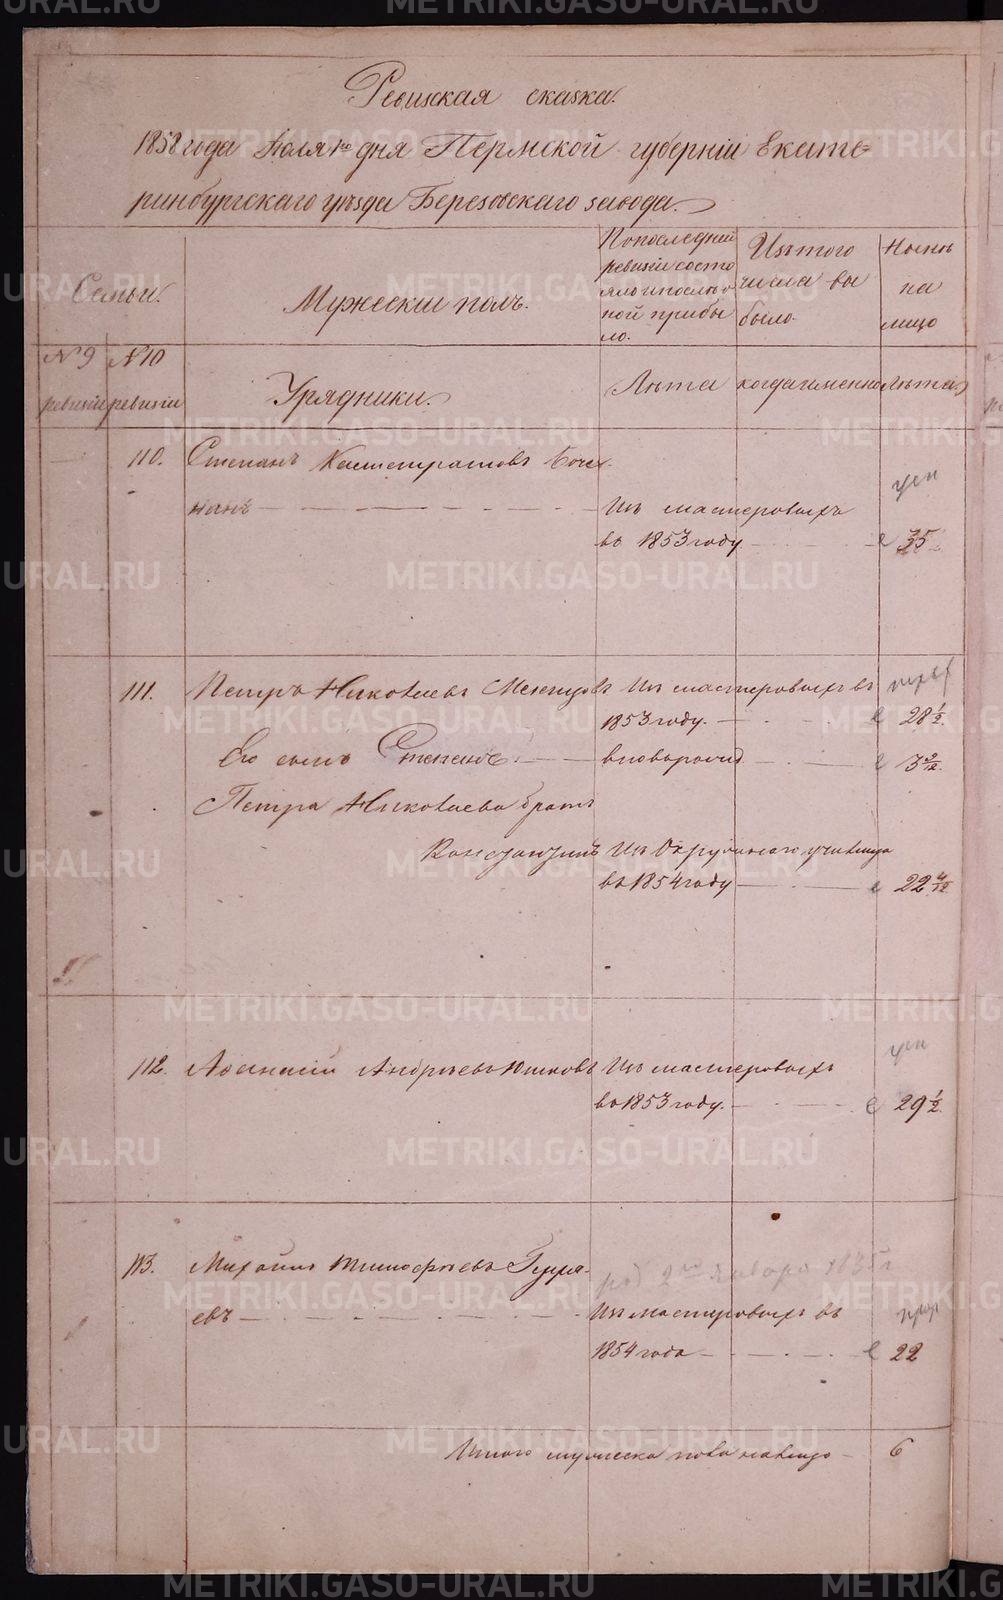 Ревизская сказка.
1858 года Июля 1го дня Пермской губерніи Екате-
ринбургскаго уѣзда Березовскаго завода.
Семьи.
Мужескій полъ.
По последней
ревизіи состо
яло и после о
ной прибы
ло.
Изъ того
числа вы
было.
Нынѣ
на
лицо
№ 9
ревизіи
№ 10
ревизіи
Урядники.
Лѣта
когда именно
Лѣта
110. Степанъ
нанъ
Изъ мастеровыхъ
въ 1853 году
35
111. Петръ Николаевъ Изъ мастеровыхъ въ
1853 году. 28 1/2.
Его сынъ Степанъ вновь рожд
3
Петра Николаева братъ
Константинъ Изъ Окружнаго училища
въ 1854 году 22
112. Афанасій Андреевъ Юшковъ Изъ мастеровыхъ
въ 1853 году. 29 1/2.
113. Михайло Тимофеевъ
евъ
род 2го января 1835 г
Изъ мастеровыхъ въ
1854 года 22
Итого мужеска пола налицо 6
METRIKI.GASO-URAL.RU